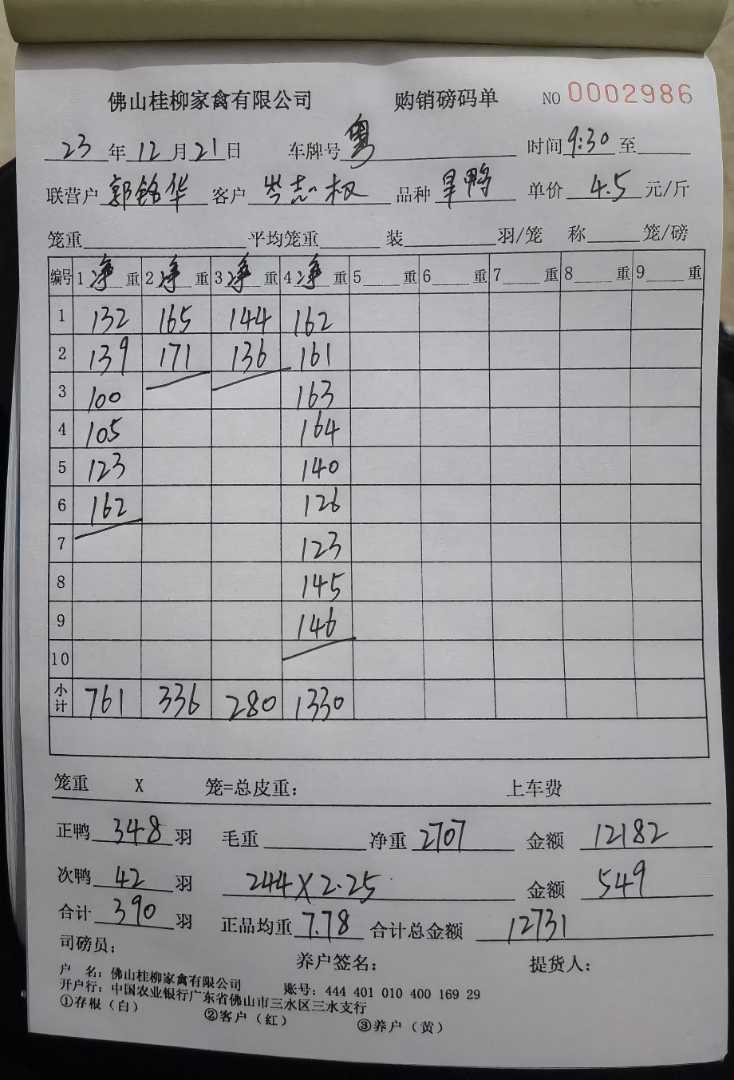 佛山桂柳家禽有限公司 购销磅码单 NO 0002986
23 年 12 月 21 日 车牌号 粤 时间 9:30 至
联营户 郭铭华 客户 岑志权 品种 旱鸭 单价 4.5 元/斤
笼重 平均笼重 装 羽/笼 称 笼/磅
编号 1 净 重 2 净 重 3 净 重 4 净 重 5 重 6 重 7 重 8 重 9 重
1 132 165 144 162
2 139 171 136 161
3 100 163
4 105 164
5 123 140
6 162 126
7 123
8 145
9 146
10
小计 761 336 280 1330
笼重 X 笼=总皮重: 上车费
正鸭 348 羽 毛重 净重 2707 金额 12182
次鸭 42 羽 244X2.25 金额 549
合计 390 羽 正品均重 7.78 合计总金额 12731
司磅员: 养户签名: 提货人:
户 名: 佛山桂柳家禽有限公司 账号: 444 401 010 400 169 29
开户行: 中国农业银行广东省佛山市三水区三水支行
①存根(白) ②客户(红) ③养户(黄)